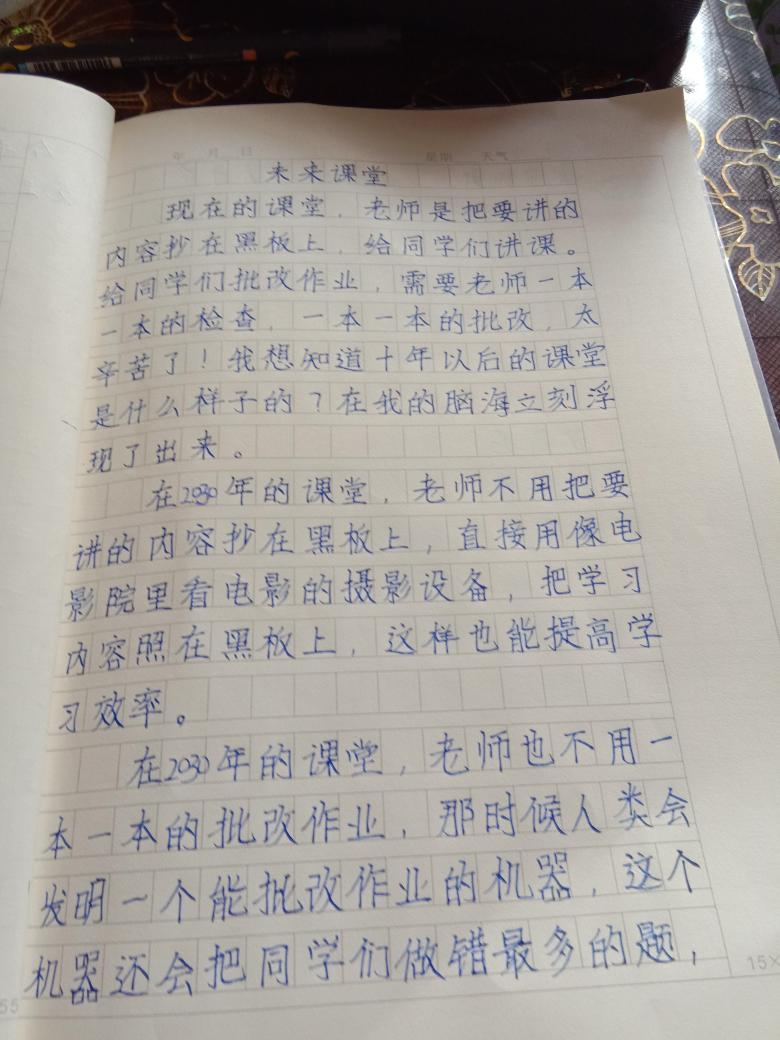 年 月 日 星期 天气
未来课堂
现在的课堂，老师是把要讲的
内容抄在黑板上，给同学们讲课。
给同学们批改作业，需要老师一本
一本的检查，一本一本的批改，太
辛苦了！我想知道十年以后的课堂
是什么样子的？在我的脑海立刻浮
现了出来。
在2030年的课堂，老师不用把要
讲的内容抄在黑板上，直接用像电
影院里看电影的摄影设备，把学习
内容照在黑板上，这样也能提高学
习效率。
在2030年的课堂，老师也不用一
本一本的批改作业，那时候人类会
发明一个能批改作业的机器，这个
机器还会把同学们做错最多的题，
55
15×